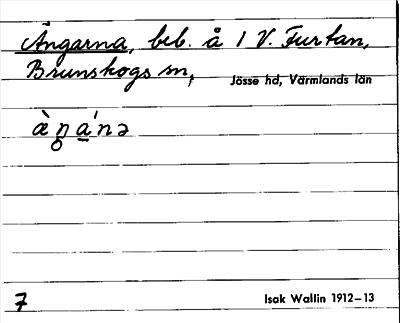 Ängarna, beb. å 1 V. Furtan,
Brunskogs sn, Jösse hd, Värmlands län
æ̀ n̥ a̲´nə
7 Isak Wallin 1912–13